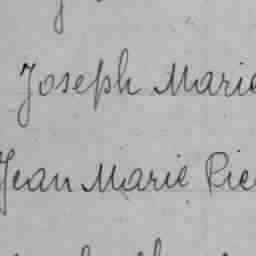 Joseph Marie
Jean Marie Pie